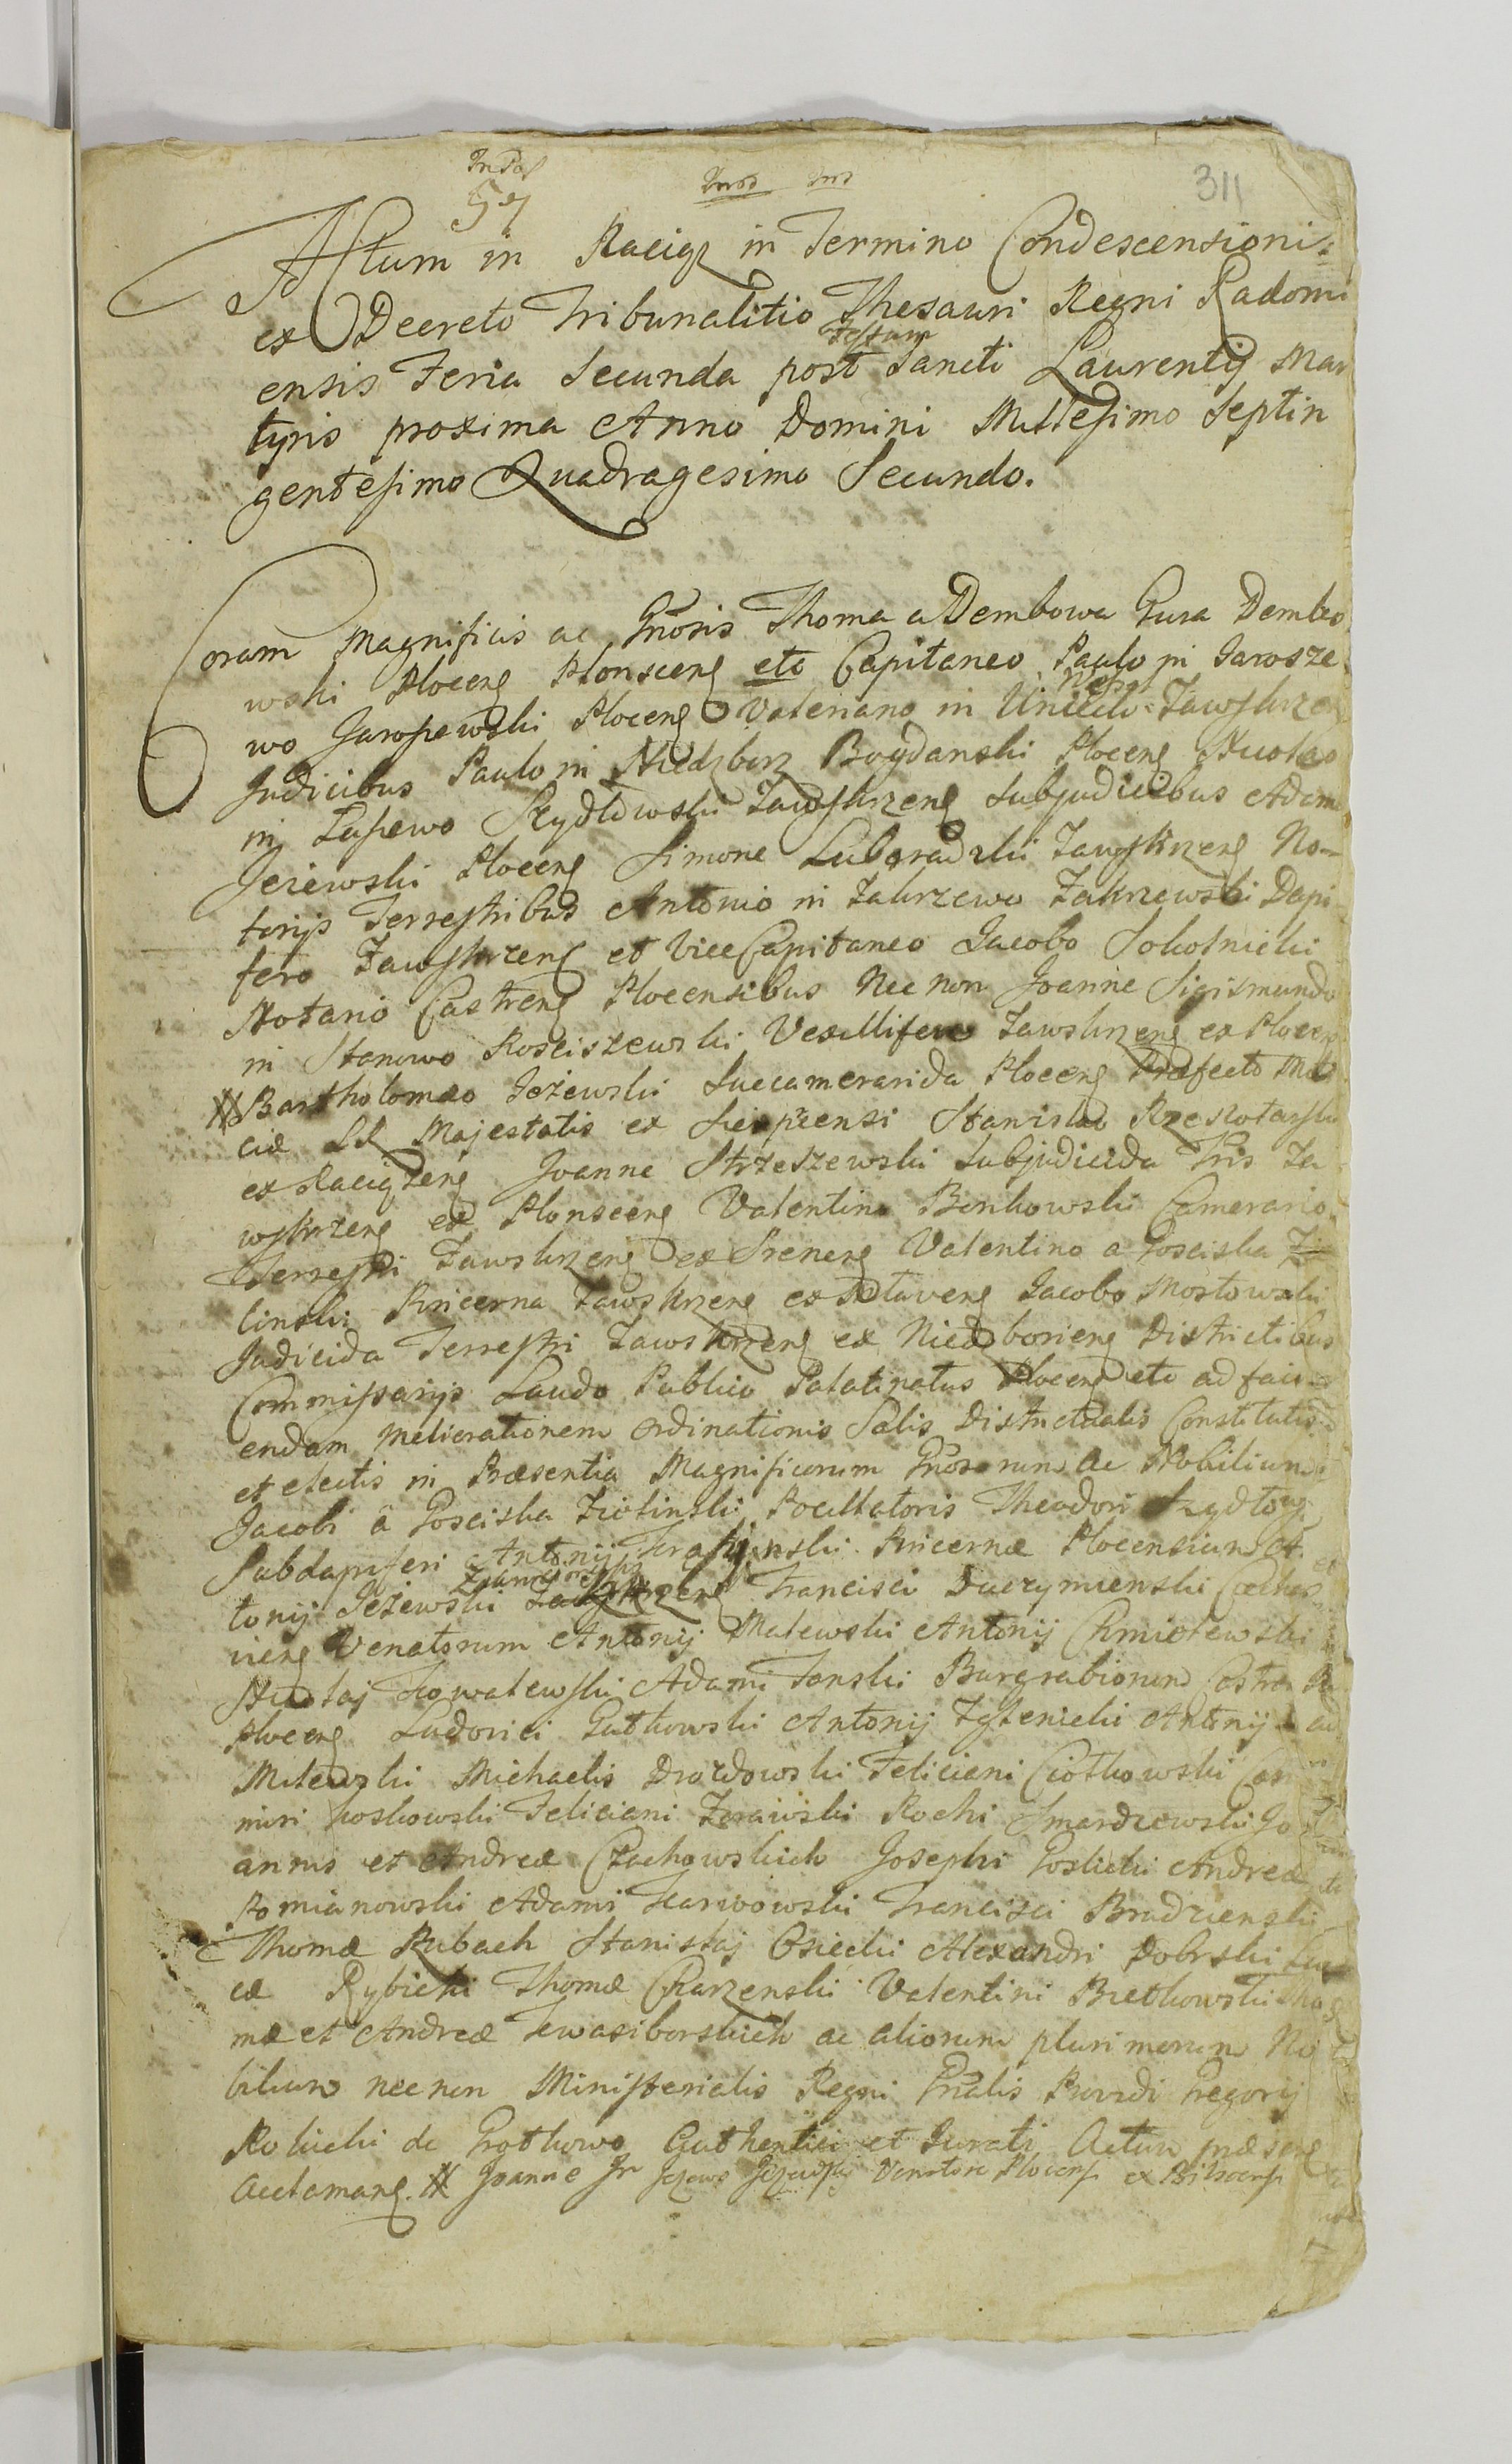 57
311
Actum in Raciąz in Termino Condescensionis
ex Decreto Tribunalitio Thesauri Regni Radomi
ensis Feria Secunda post Festum Sancti Laurentij Mar
tyris proxima Anno Domini Millesimo Septin
gentesimo Quadragesimo Secundo.
Coram Magnificis ac Gnosis Thoma a Dembowa Gura Dembo
wski Plocens Plonscens etc Capitaneo Paulo in Jarosze
wo Jaroszewski Plocens Valeriano in Zawskrzens
Judicibus Paulo in Niedzborz Bogdanski Plocens Nicolao
in Laszewo Szydlowski Zawskrzens Subjudicibus Adamo
Jezewski Plocens Simone Luboradzki Zawskrzens No-
tarijs Terrestribus Antonio in Zakrzewo Zakrzewski Dapi
fero Zawskrzens et Vice Capitaneo Jacobo Sokolnicki
Notario Castrens Plocensibus Nec non Joanne Sigismundo
in Stanowo Rosciszewski Vexillifero Zawskrzens ex Plocens
# Bartholomæo Jeżewski Succamerarida Plocens Præfecto Mili
ciæ SR Majestatis ex Sieprcensi Stanislao Rzeszotarski
ex Raciązens Joanne Strzeszewski Subjudicida Tris Za
wskrzens ex Plonscens Valentino Bonkowski Camerario
Terrestri Zawskrzens ex Srenens Valentino a Gosciska Zio
linski Pincerna Zawskrzens ex Mlavens Jacobo Mostowski
Judicida Terrestri Zawskrzens ex Niedzboriens Districtibus
Commissarijs Laudo Publico Palatinatus Plocens etc ad faci-
endam meliorationem ordinationis Salis Districtualis Constitutis
et electis in Præsentia Magnificorum Gnosorum ac Nobilium
Jacobi â Gosciska Ziolinski Pocillatoris Theodori Szydlows
Subdapiferi Antonij Krasinski Pincernæ Plocensium An
tonij Jeżewski Francisci Duczymienski Ciecha
niens Venatorum Antonij Malewski Antonij Chmielewski
Nicolaj Kowalewski Adami Jonski Burgrabiorum Castren
Plocens Ludovici Gutkowski Antonij Zglenicki Antonij
Milewski Michaelis Drozdowski Feliciani Ciołkowski Casi
miri Koskowski Feliciani Zorawski Rochi Smardzewski Jo
annis et Andreæ Czachowskich Josephi Goslicki Andreæ
Romianowski Adami Karwowski Francisci Brudzienski
Thomæ Rubach Stanislaj Osiecki Alexandri Dobrski Lu
cæ Rybicki Thomæ Charzenski Valentini Bretkowski Tho
mæ et Andreæ Kwasiborskich ac aliorum plurimorum No
bilium nec non Ministerialis Regni Gnalis Providi Gregorij
Rokicki de Grotkowo Authentici et Jurati Actum præsens
acclamans. # Joanne In Jezewo Jezewski Venatore Plocens ex Bilscens